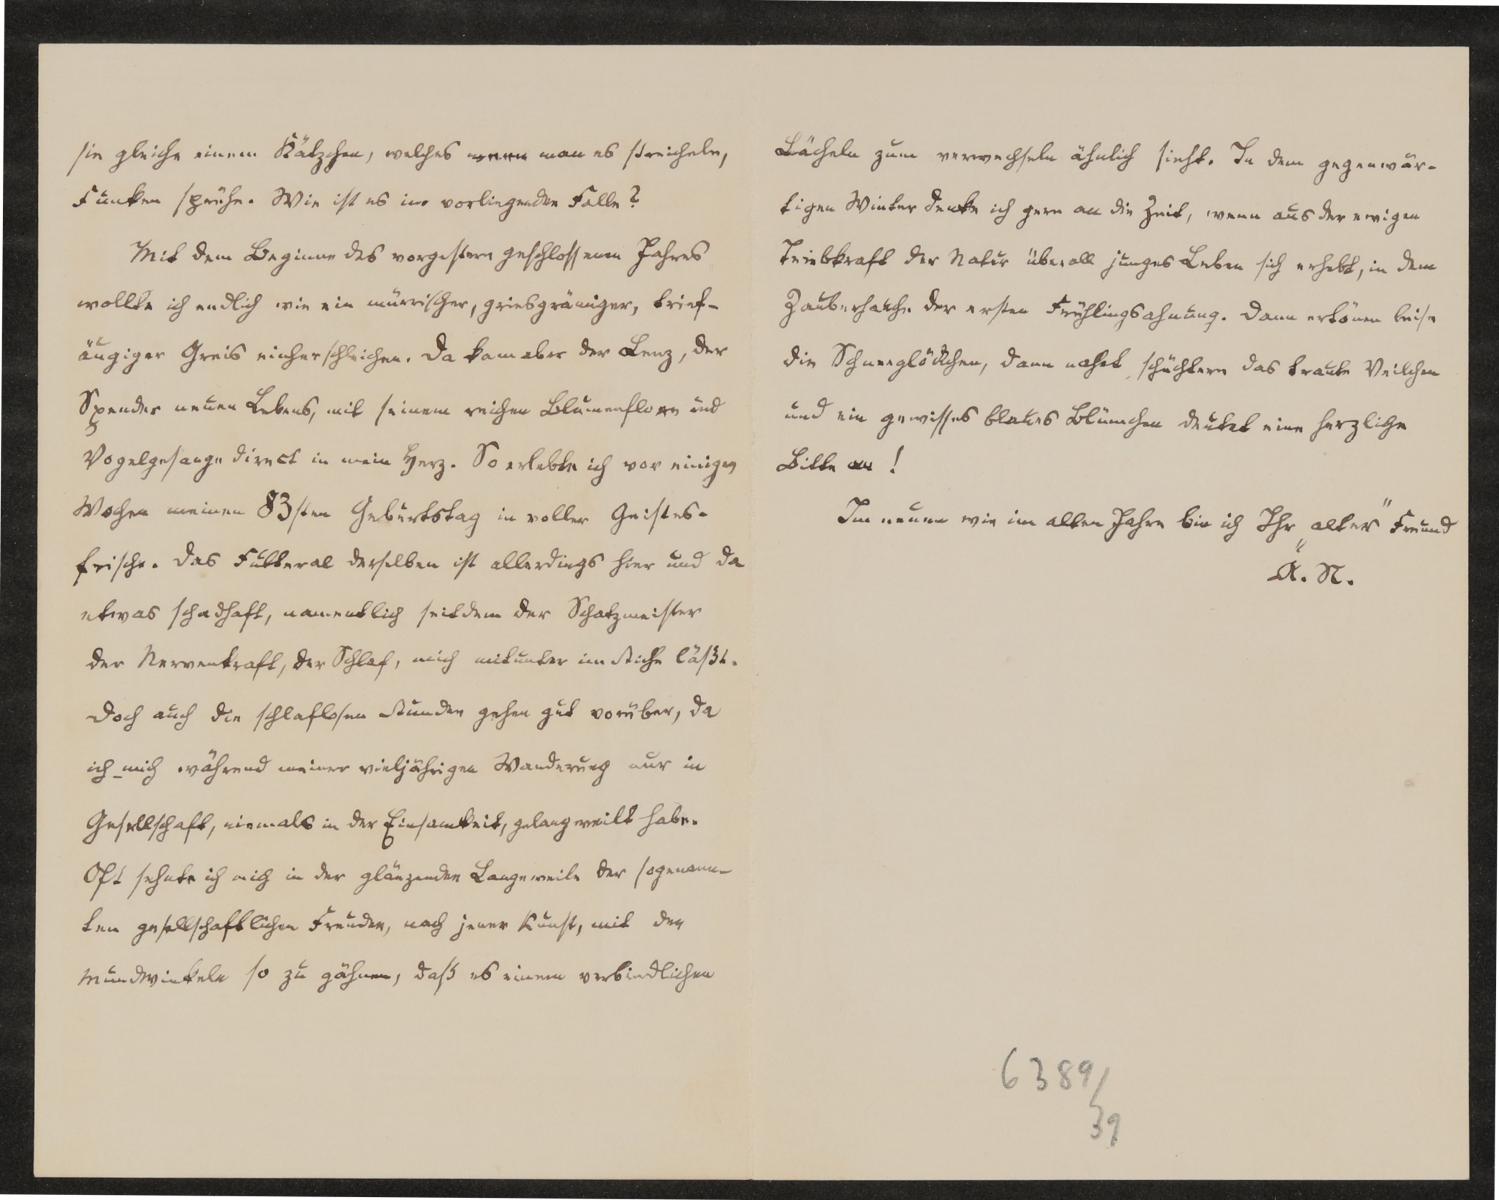 sie gleiche einem Kätzchen, welches wenn man es streichele,
Funken sprühe. Wie ist es im vorliegenden Falle?
Mit dem Beginne des vorgestern geschlossenen Jahres
wollte ich endlich wie ein mürrischer, griesgrämiger, trief-
äugiger Greis einherschleichen. Da kam aber der Lenz, der
Spender neuen Lebens, mit seinem reichen Blumenflore und
Vogelgesange direct in mein Herz. So erlebte ich vor einigen
Wochen meinen 83sten Geburtstag in voller Geistes-
frische. Das Futteral derselben ist allerdings hier und da
etwas schadhaft, namentlich seitdem der Schatzmeister
der Nervenkraft, der Schlaf, mich mitunter im Stiche läßt.
Doch auch die schlaflosen Stunden gehen gut vorüber, da
ich mich während meiner vieljährigen Wanderung nur in
Gesellschaft, niemals in der Einsamkeit, gelangweilt habe.
Oft sehnte ich mich in der glänzenden Langeweile der sogenann-
ten gesellschaftlichen Freuden, nach jener Kunst, mit den
Mundwinkeln so zu gähnen, daß es einem verbindlichen
Lächeln zum verwechseln ähnlich sieht. In dem gegenwär-
tigen Winter denke ich gern an die Zeit, wenn aus der ewigen
Triebkraft der Natur überall junges Leben sich erhebt, in dem
Zauberhauche der ersten Frühlingsahnung. Dann ertönen leise
die Schneeglöckchen, dann nahet schüchtern das traute Veilchen
und ein gewisses blaues Blümchen deutet eine herzliche
Bitte an!
Im neuen wie im alten Jahre bin ich Ihr „alter" Freund
A. N.
6389/
39